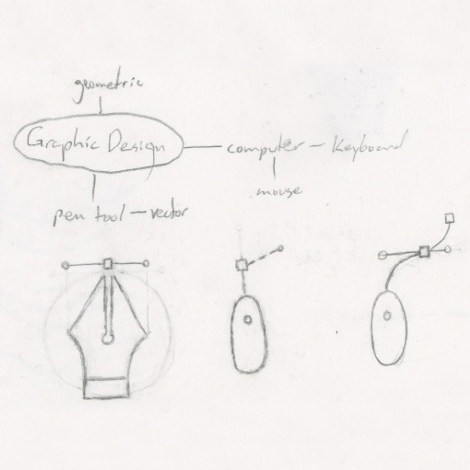 geometric
Graphic Design
computer – Keyboard
mouse
pen tool – vector